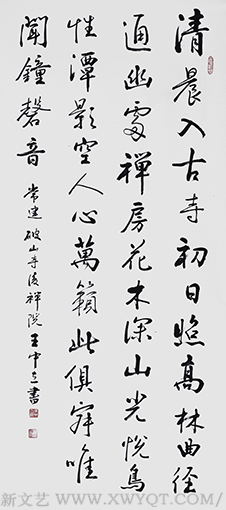 清晨入古寺初日照高林曲径
通幽處禅房花木深山光悦鳥
性潭影空人心萬籟此俱寂唯
聞鐘磬音 常建破山寺後禅院 王中立書
新文艺 WWW.XWYQT.COM/